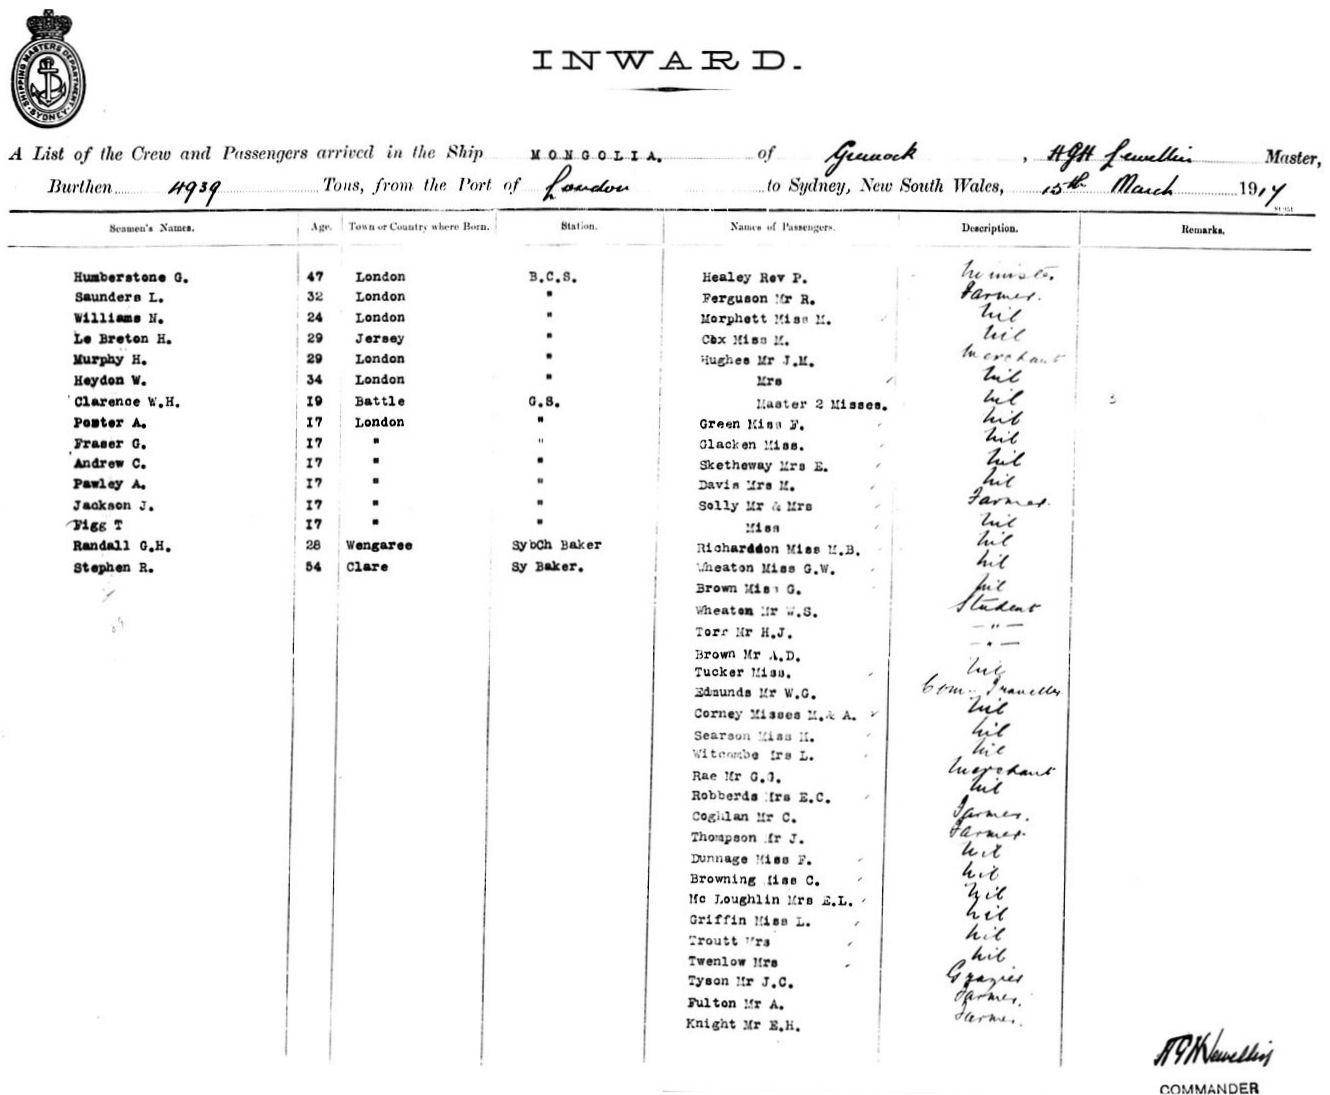 SHIPPING MASTERS DEPARTMENT SYDNEY
INWARD.
A List of the Crew and Passengers arrived in the Ship MONGOLIA. of Greenock, HGH Lewellin Master,
Burthen 4939 Tons, from the Port of London to Sydney, New South Wales, 15th March 1917
Seamen's Names. Age. Town or Country where Born. Station. Names of Passengers. Description. Remarks.
Humberstone G. 47 London B.C.S. Healey Rev P. Minister
Saunders L. 32 London " Ferguson Mr R. Farmer.
Williams N. 24 London " Morphett Miss M. Nil
Le Breton H. 29 Jersey " Cox Miss M. Nil
Murphy H. 29 London " Hughes Mr J.M. Merchant
Heydon W. 34 London " Mrs Nil
Clarence W.H. 19 Battle G.S. Master 2 Misses. Nil 3
Poster A. 17 London " Green Miss F. Nil
Fraser G. 17 " " Glacken Miss. Nil
Andrew C. 17 " " Sketheway Mrs E. Nil
Pawley A. 17 " " Davis Mrs M. Nil
Jackson J. 17 " " Solly Mr & Mrs Farmer.
Figg T 17 " " Miss Nil
Randall G.H. 28 Wengaree SybCh Baker Richarddon Miss M.B. Nil
Stephen R. 54 Clare Sy Baker. Wheaton Miss G.W. Nil
Brown Miss G. Nil
Wheaton Mr W.S. Student
Torr Mr H.J. — " —
Brown Mr A.D. — " —
Tucker Miss. Nil
Edmunds Mr W.G. Com. Traveller
Corney Misses M.& A. Nil
Searson Miss M. Nil
Witcombe Mrs L. Nil
Rae Mr G.G. Merchant
Robberds Mrs E.C. Nil
Coghlan Mr C. Farmer.
Thompson Mr J. Farmer.
Dunnage Miss F. Nil
Browning Miss C. Nil
Mc Loughlin Mrs E.L. Nil
Griffin Miss L. Nil
Troutt Mrs Nil
Twenlow Mrs Nil
Tyson Mr J.C. Grazier
Fulton Mr A. Farmer.
Knight Mr E.H. Farmer.
HGH Lewellin
COMMANDER